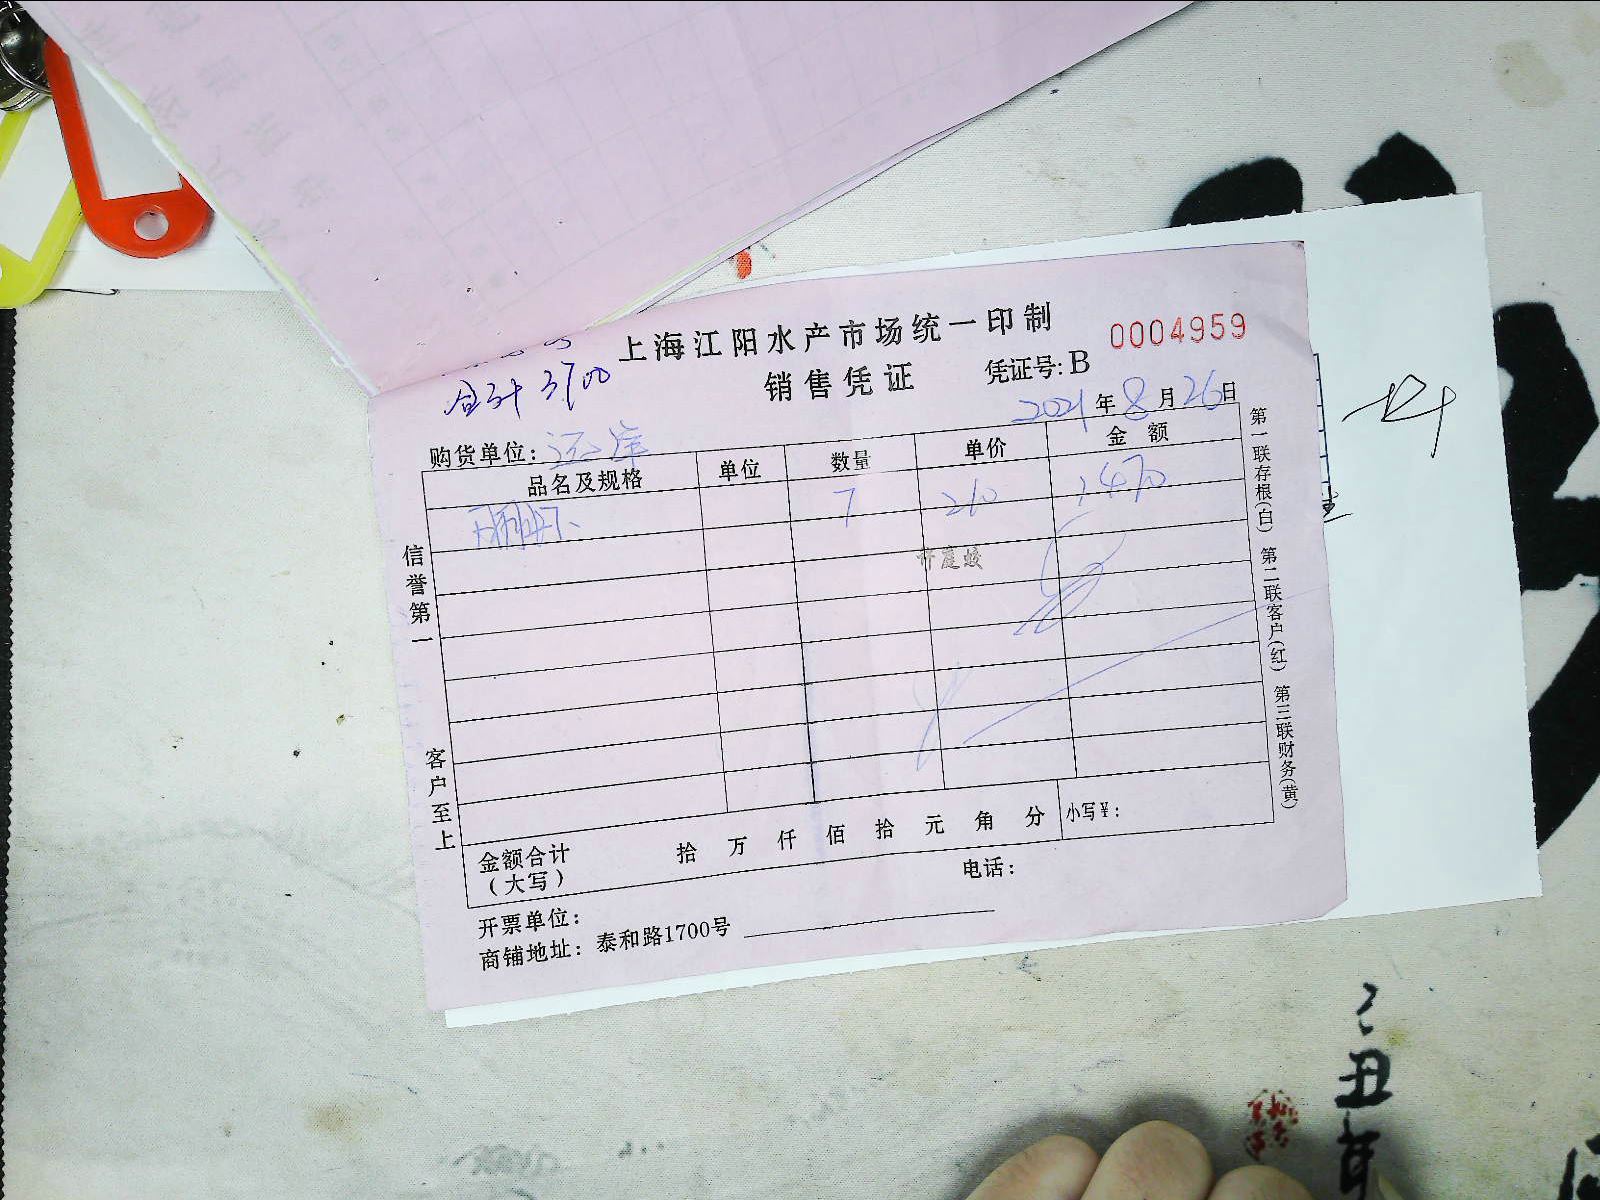 上海江阳水产市场统一印制
0004959
销售凭证 凭证号：B
合计 3700
2021年8月26日
购货单位：
品名及规格 单位 数量 单价 金额
7 210 1470
许庭蛟
信誉第一
客户至上
第一联存根(白) 第二联客户(红) 第三联财务(黄)
金额合计（大写） 拾 万 仟 佰 拾 元 角 分 小写￥：
开票单位： 电话：
商铺地址：泰和路1700号
丑年